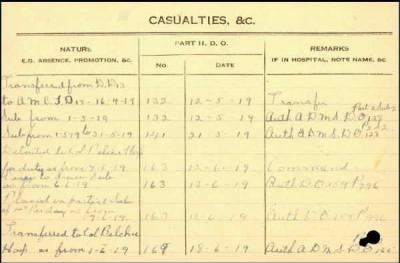 CASUALTIES, &C.
NATURE
E.G. ABSENCE, PROMOTION, &C.
PART II. D. O.
NO.
DATE
REMARKS
IF IN HOSPITAL, NOTE NAME, &C.
Transferred from D.D.13
to A.M.C. T.D. 13 - 16-4-19 132 12-5-19 Transfer
Subs from 1-5-19 132 12-5-19 Auth A.D.M.S. D.O.
Subs from 1-5-19 to 31-5-19 141 21-5-19 Auth A.D.M.S. D.O.
Detailed to Col Belcher Hosp
for duty as from 163 12-6-19 Command
as from 6-19 163 12-6-19 Auth D.O 159 P796
Placed on
as from
7-6-19 163 12-6-19 Auth D.O 159 P796
Transferred to Col Belcher
Hosp as from 1-6-19 169 18-6-19 Auth A.D.M.S. D.O.